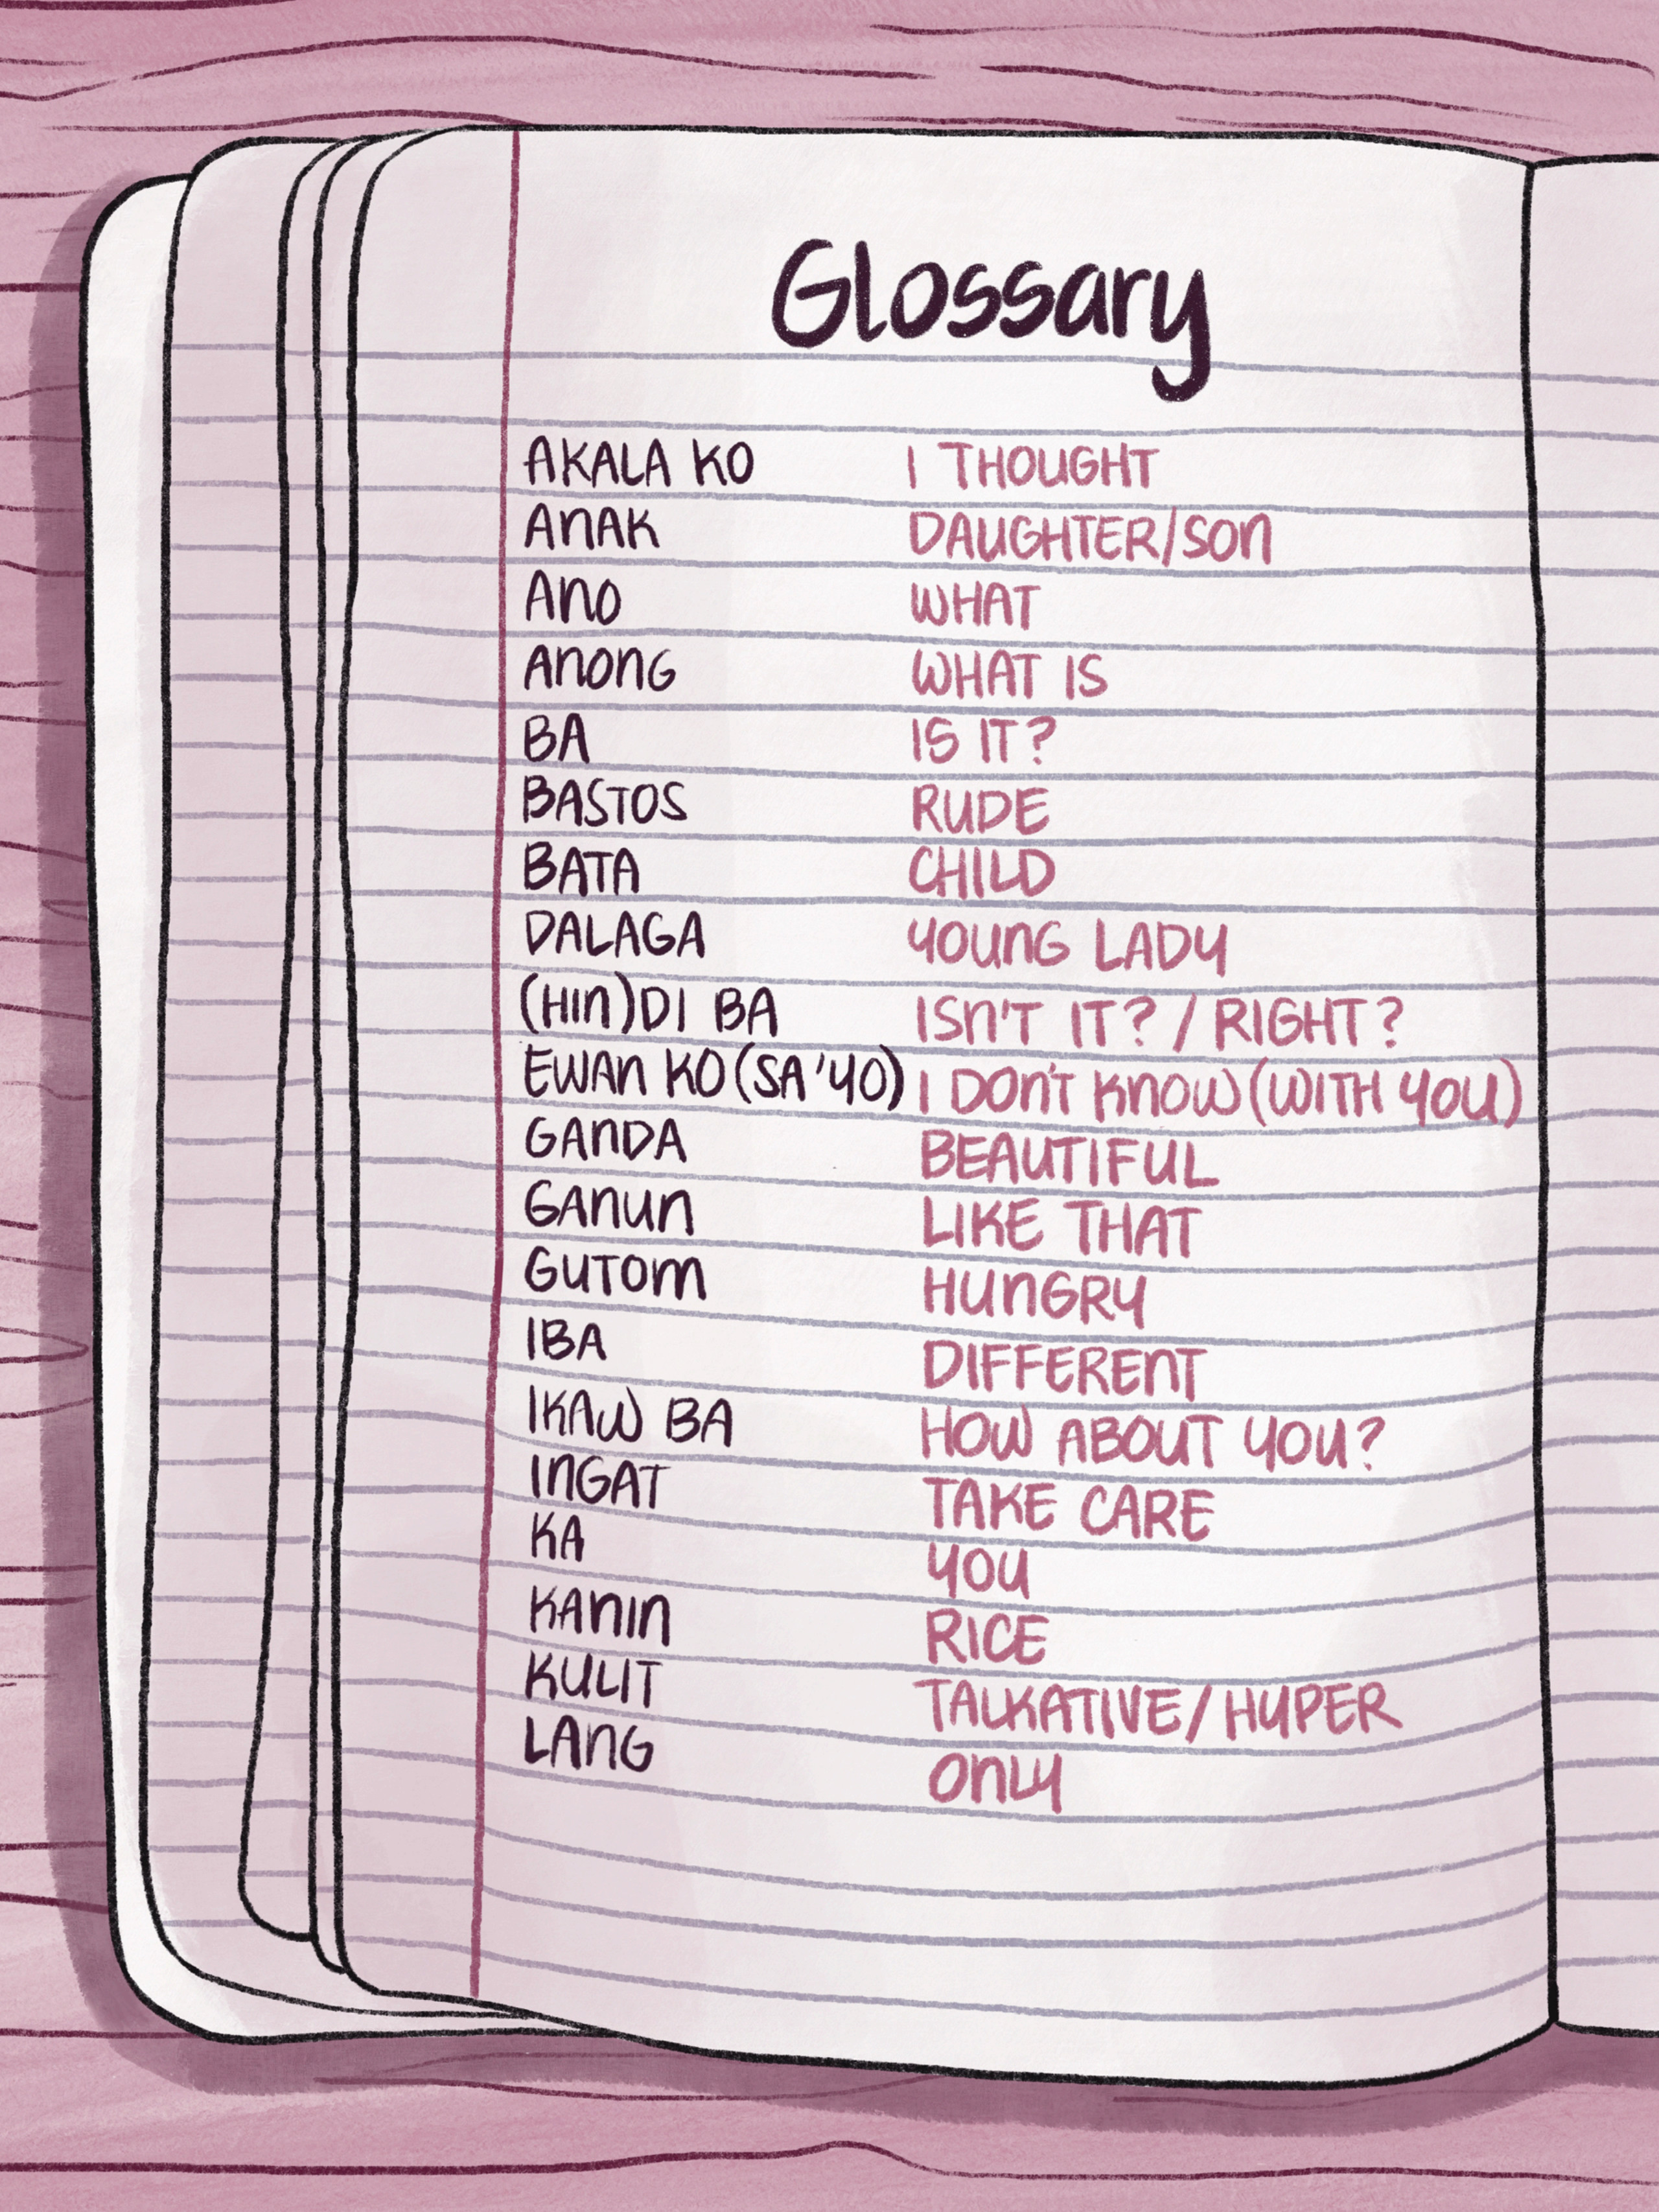 Glossary
AKALA KO I THOUGHT
ANAK DAUGHTER/SON
ANO WHAT
ANONG WHAT IS
BA IS IT?
BASTOS RUDE
BATA CHILD
DALAGA YOUNG LADY
(HIN)DI BA ISN'T IT? / RIGHT?
EWAN KO (SA 'YO) I DON'T KNOW (WITH YOU)
GANDA BEAUTIFUL
GANUN LIKE THAT
GUTOM HUNGRY
IBA DIFFERENT
IKAW BA HOW ABOUT YOU?
INGAT TAKE CARE
KA YOU
KANIN RICE
KULIT TALKATIVE/HYPER
LANG ONLY